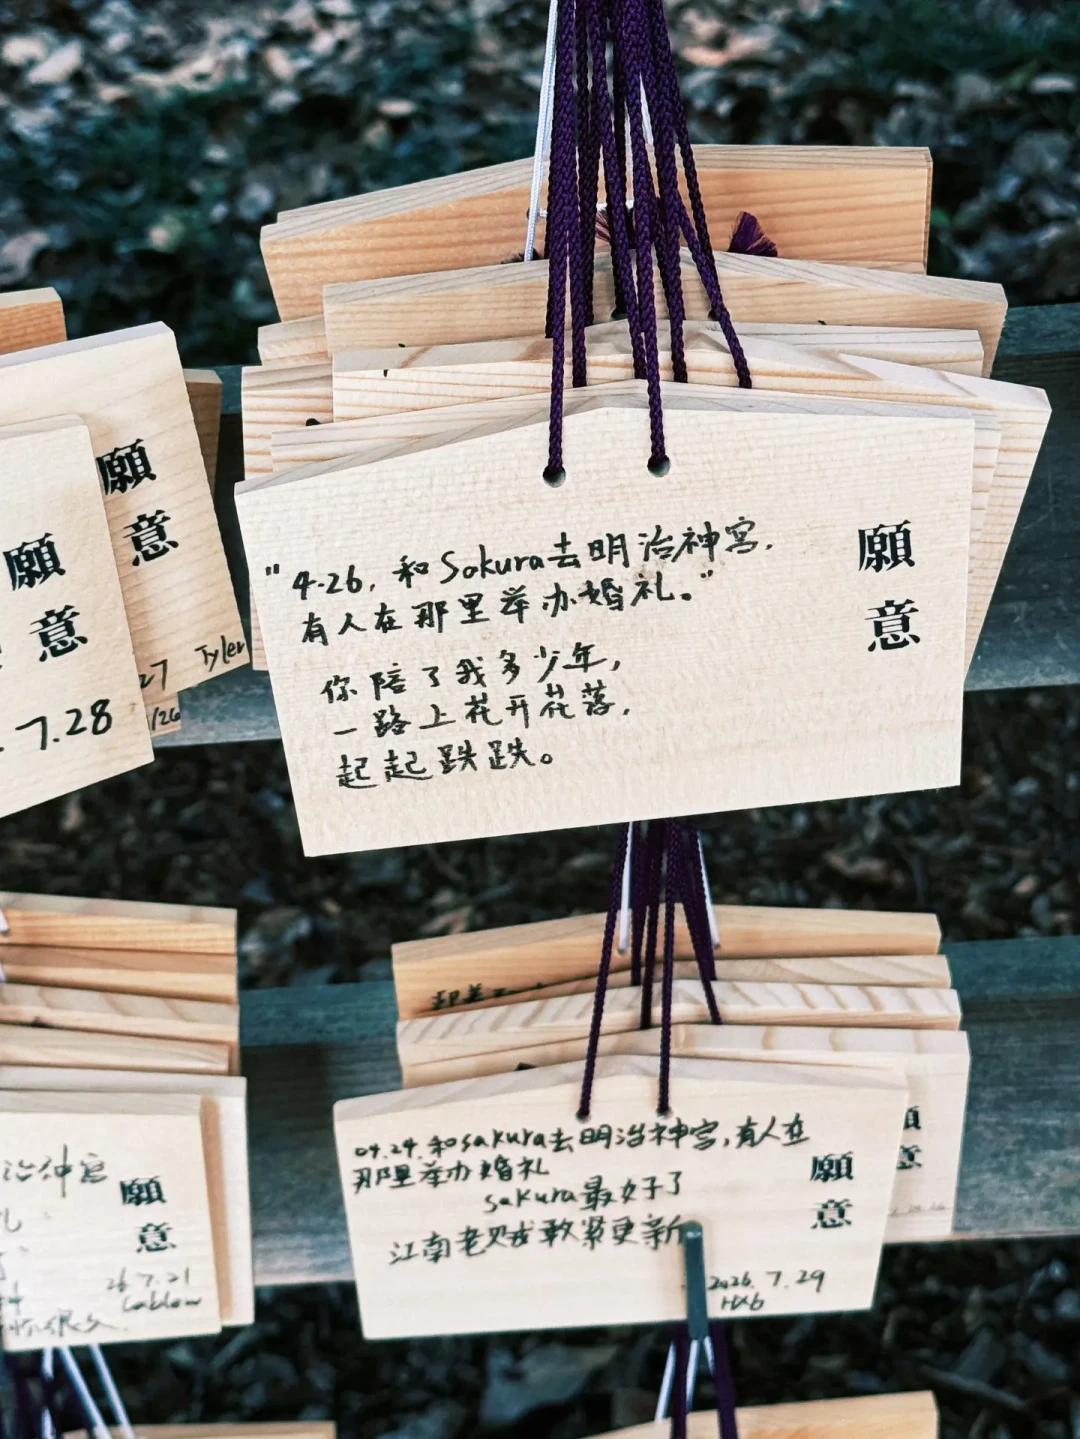 願
意
Tyler
27
/26
願
意
7.28
"4.26,和Sakura去明治神宫,
有人在那里举办婚礼。"
你陪了我多少年,
一路上花开花落,
起起跌跌。
願
意
治神宮
願
意
26 7.21
04.24.和sakura去明治神宫,有人在
那里举办婚礼
sakura最好了
江南老贼敢紧更新
願
意
2026.7.29
HX6